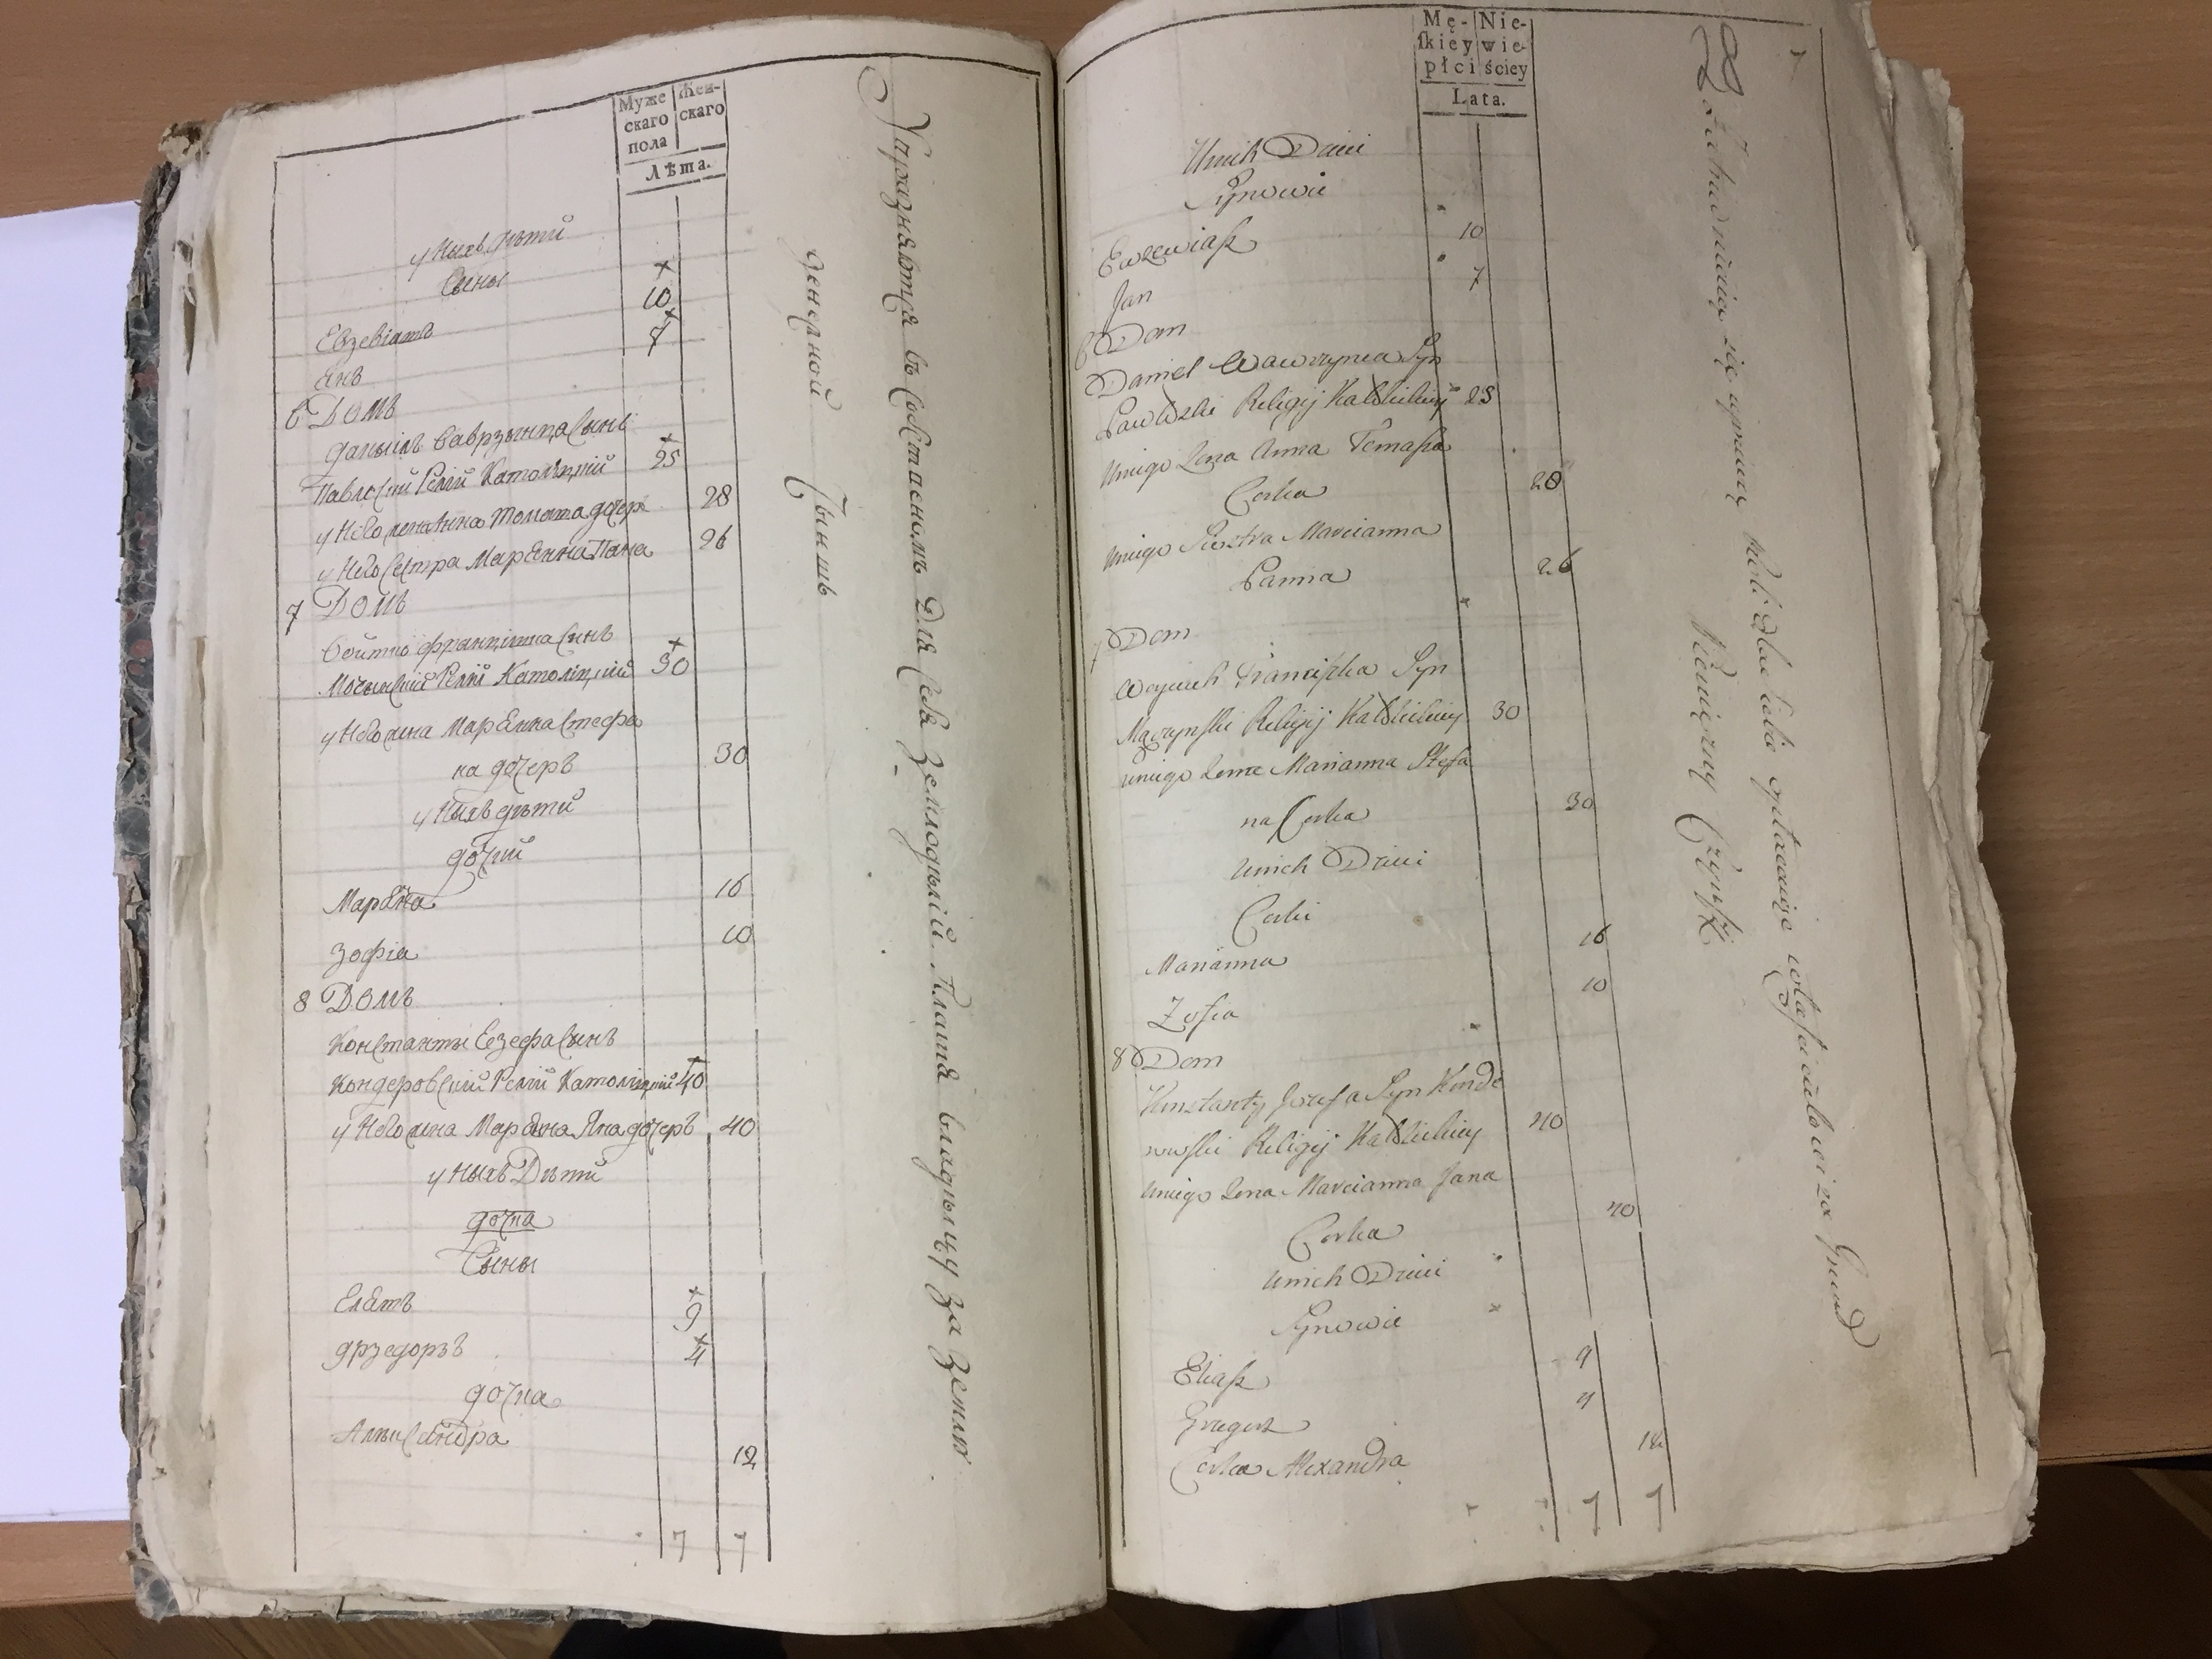 Муже
скаго
пола
Жен-
скаго
Лѣта.
у Ныхъ дѣти
Сыны
Евзебіашъ 10
Янъ 7
6 Домъ
Данылъ Ваврзынца Сынъ
Павлоский Релій Католицкій 25
у Него жена Анна Томаша дочеръ 28
у Него Сестра Марѣнна Панна 26
7 Домъ
Войтѣ францишка Сынъ
Мочынский Релій Католицкій 30
у Него жена Марѣнна Стефа
на дочеръ 30
у Ныхъ дѣти
дочки
Марѣнна 16
Зофіа 10
8 Домъ
Константы Езефа Сынъ
Кондеровский Релій Католицкій 40
у Него жена Марѣнна Яна дочеръ 40
у Ныхъ Дѣти
дочка
Сыны
Еляшъ 9
Грзегоръ 4
дочка
Александра 12
7 7
Упразняются въ Состаеномъ Для Себя Землодѣлій Платя Владѣлцу За Землю
Денежной Чыншъ
Mę-
skiey
płci
Nie-
wie-
ściey
Lata.
Unich Dzieci
Synowie
Euzewiasz 10
Jan 7
6 Dom
Daniel Wawrzynca Syn
Pawłoski Religij Katolickiey 25
Uniego Zona Anna Tomasza
Corka 28
Uniego Siostra Marcianna
Panna 26
7 Dom
Woyciech Franciszka Syn
Mączynski Religij Katolickiey 30
Uniego Zona Marianna Stefa
na Corka 30
Unich Dzieci
Corki
Marianna 16
Zofia 10
8 Dom
Konstanty Jozefa Syn Konde
rowski Religij Katolickiey 40
Uniego Zona Marcianna Jana
Corka 40
Unich Dzieci
Synowie
Eliasz 9
Grzegorz 4
Corka Alexandra 12
7 7
się roli dla siebie Włascicielowi za Grunt
Pieniężny Czynsz